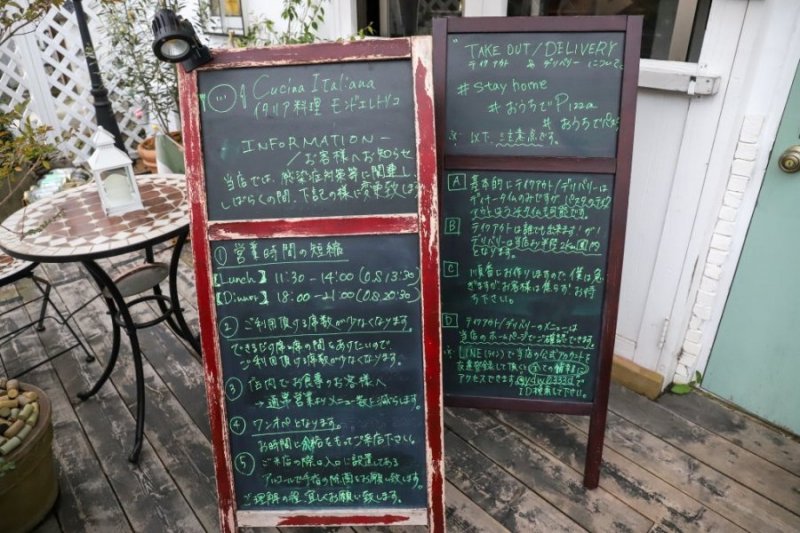 Cucina Italiana
イタリア料理 モンドエレトリコ
INFORMATION
/お客様へお知らせ
当店では、感染症対策等に関車し、
しばらくの間、下記の様に変更致します
① 営業時間の短縮
【Lunch】11:30 - 14:00 (O.S 13:30)
【Dinner】18:00 - 21:00 (O.S 20:30)
② ご利用頂ける席数が少なくなります。
できるだけ席と席の間をあけたいので、
ご利用頂ける席数が少なくなります。
③ 店内でお食事のお客様へ
→ 通常営業よりメニュー数を減らします。
④ ワンオペとなります。
お時間に余裕をもってご来店下さい。
⑤ ご来店の際は入口に設置してある
アルコールで手指の除菌をお願い致します。
ご理解の程、宜しくお願い致します。
TAKE OUT/DELIVERY
テイクアウト & デリバリー について
#stay home
#おうちでPizza
#おうちでパスタ
※ 以下、注意点です。
A 基本的にテイクアウト/デリバリーは
ディナータイムのみですが
B テイクアウトは誰でも出来ます!が!
デリバリーは当店より半径2km圏内
となります。
C 順番にお作りしますので、僕は急
ぎますがお客様は焦らずお待
ち下さい。
D テイクアウト/デリバリーのメニューは
当店のホームページでご確認できます。
LINE(ライン)で当店の公式アカウントを
友達登録して頂い
アクセスできます
ID検索して下さい。